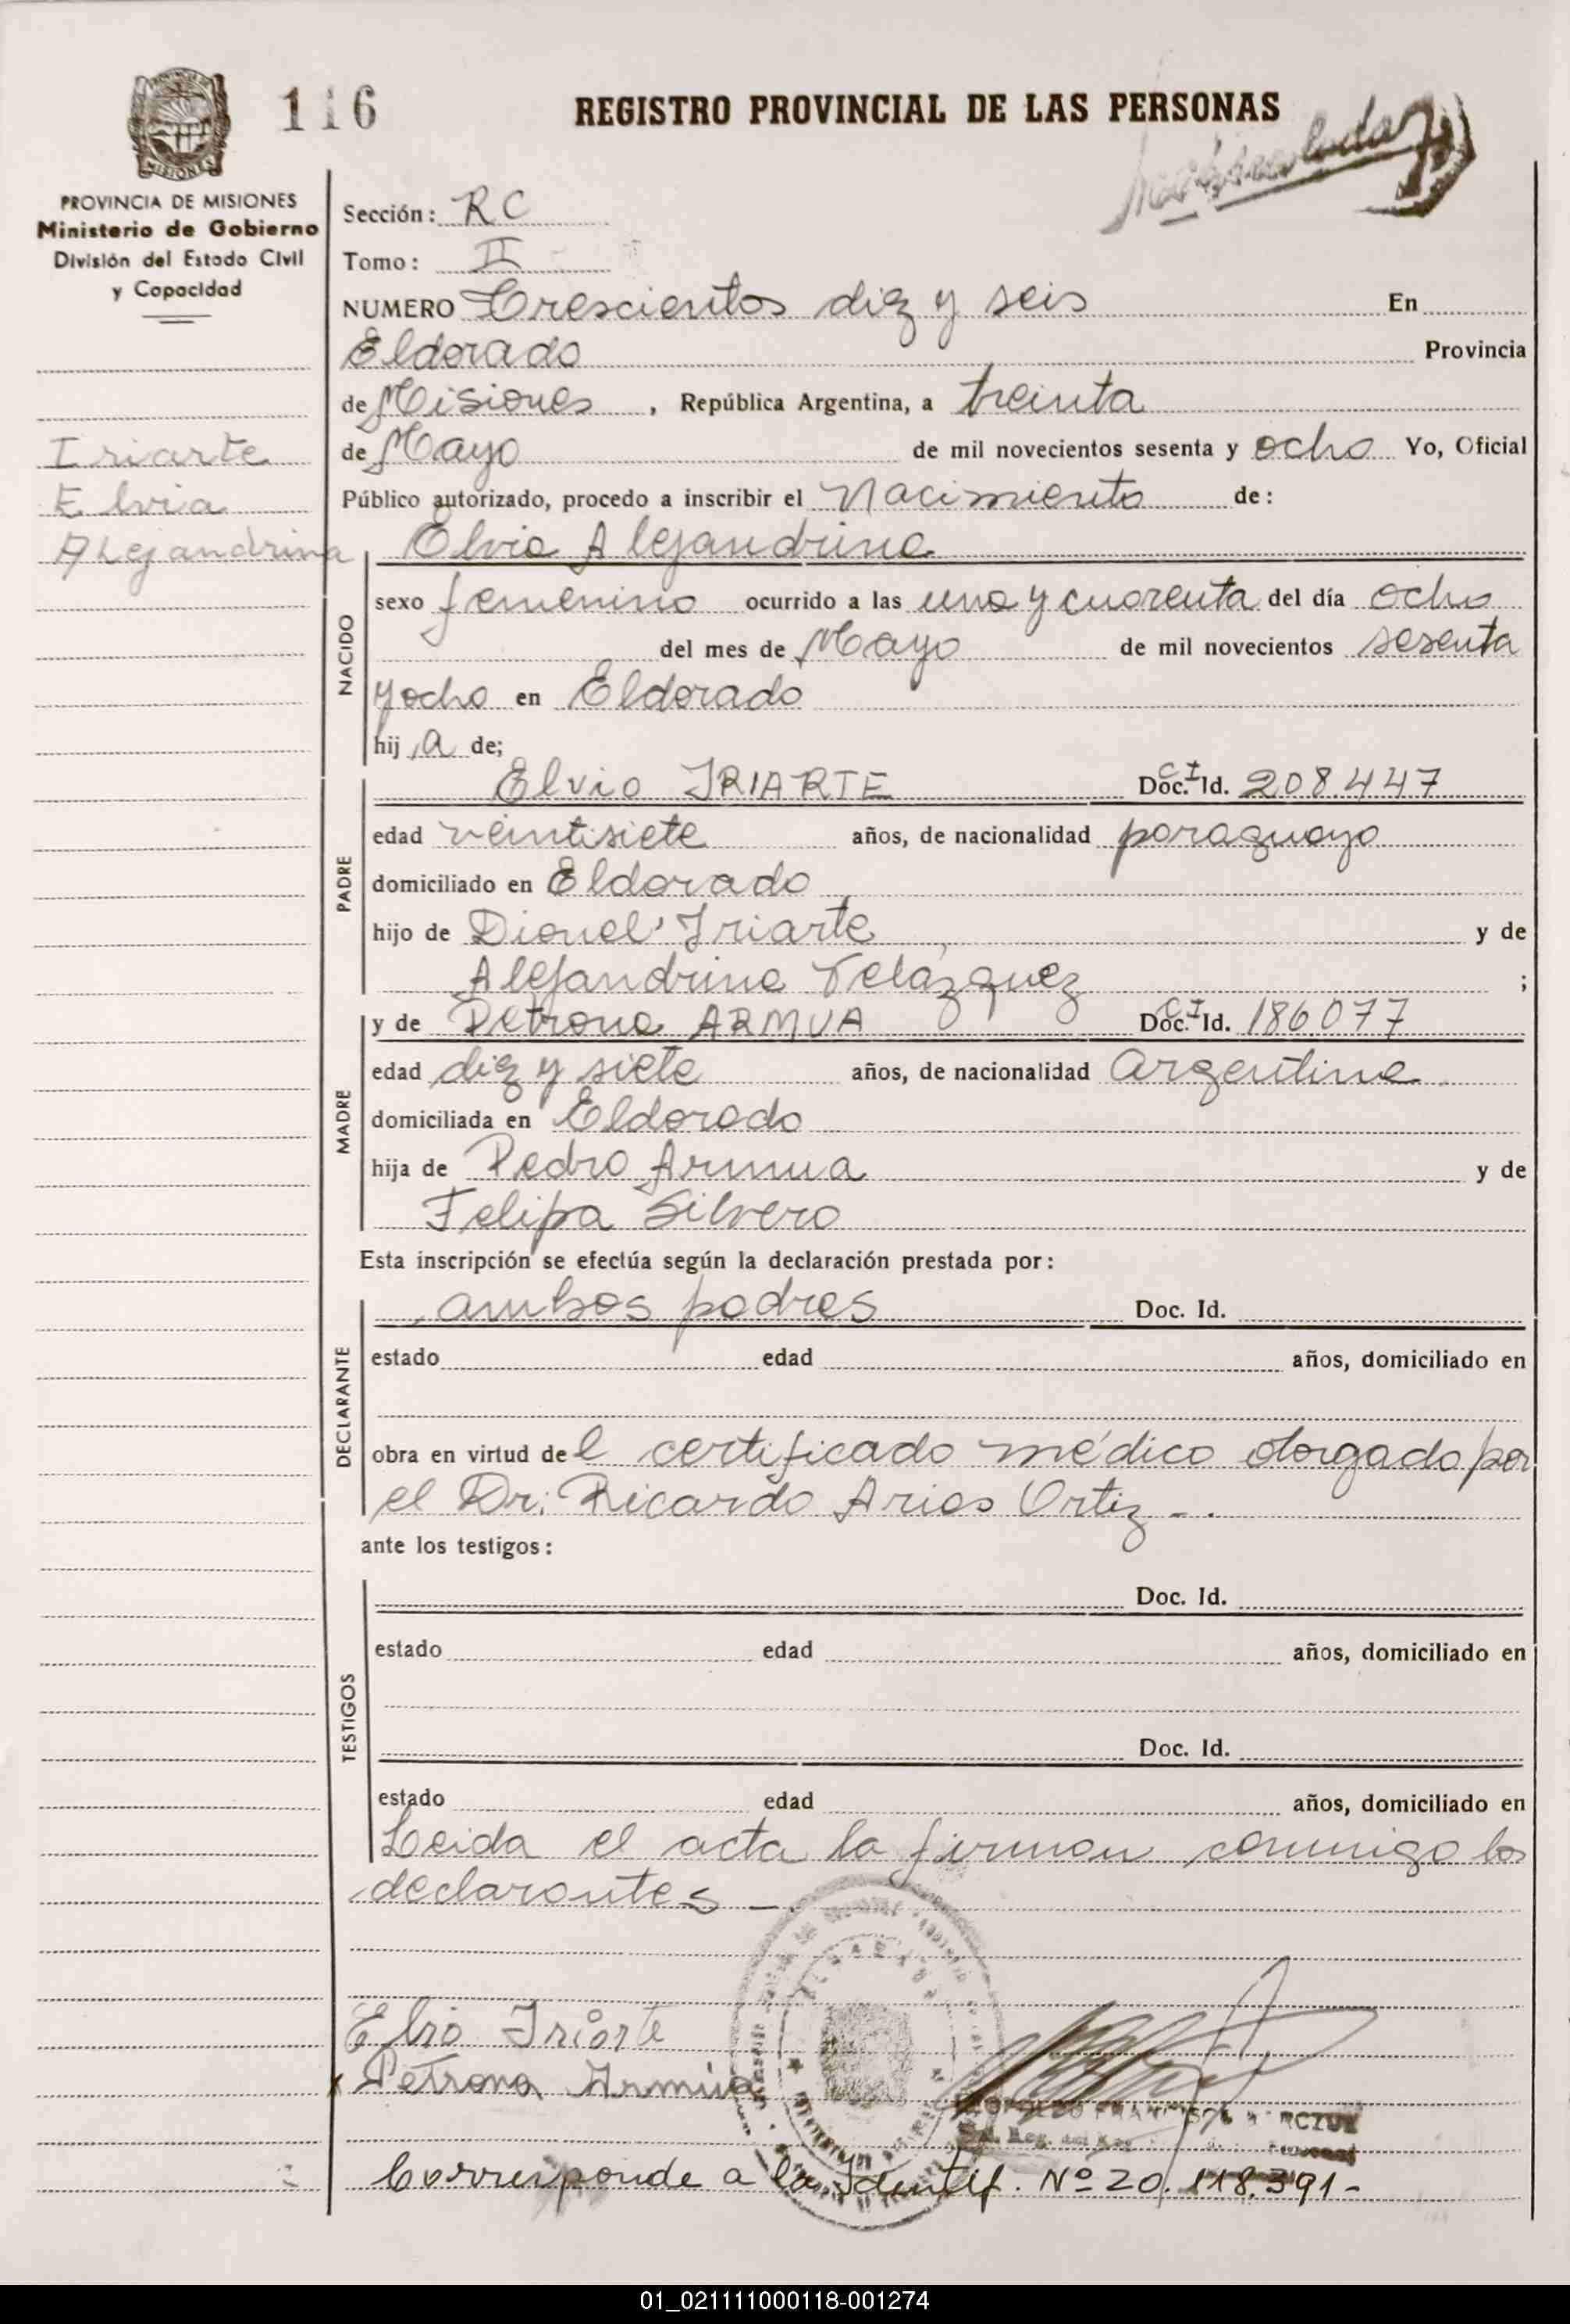 116
REGISTRO PROVINCIAL DE LAS PERSONAS
MISIONES
PROVINCIA DE MISIONES
Ministerio de Gobierno
División del Estado Civil
y Capacidad
Iriarte
Elvia
Alejandrina
Sección: RC
Tomo: II
NUMERO Trescientos diez y seis En
Eldorado Provincia
de Misiones, República Argentina, a treinta
de Mayo de mil novecientos sesenta y ocho Yo, Oficial
Público autorizado, procedo a inscribir el Nacimiento de:
Elvia Alejandrina
NACIDO
sexo femenino ocurrido a las una y cuarenta del día ocho
del mes de Mayo de mil novecientos sesenta
y ocho en Eldorado
hij a de;
PADRE
Elvio IRIARTE Doc. Id. C I 208.447
edad veintisiete años, de nacionalidad paraguayo
domiciliado en Eldorado
hijo de Dionel Iriarte y de
Alejandrina Velázquez ;
MADRE
y de Petrona ARMUA Doc. Id. C I 186.077
edad diez y siete años, de nacionalidad Argentina
domiciliada en Eldorado
hija de Pedro Armua y de
Felipa Silvero
Esta inscripción se efectúa según la declaración prestada por:
DECLARANTE
ambos padres Doc. Id.
estado edad años, domiciliado en
obra en virtud de l certificado médico otorgado por
el Dr. Ricardo Arios Ortiz -.
ante los testigos:
TESTIGOS
Doc. Id.
estado edad años, domiciliado en
Doc. Id.
estado edad años, domiciliado en
Leida el acta la firman conmigo los
declarantes —.
Elvio Iriarte
x Petrona Armúa
Corresponde a la Identif. Nº 20.118.391-
01_021111000118-001274